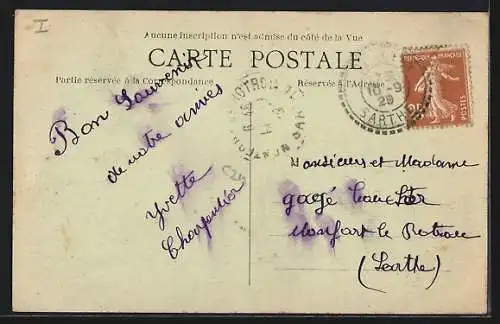 I
Aucune inscription n'est admise du côté de la Vue
CARTE POSTALE
Partie réservée à la Correspondance
Réservée à l'Adresse
Bon Souvenir
de notre
Yvette
Charpentier
Monsieur et Madame
gagé
Monfort le Rotrou
(Sarthe)
29
SARTHE
POSTES